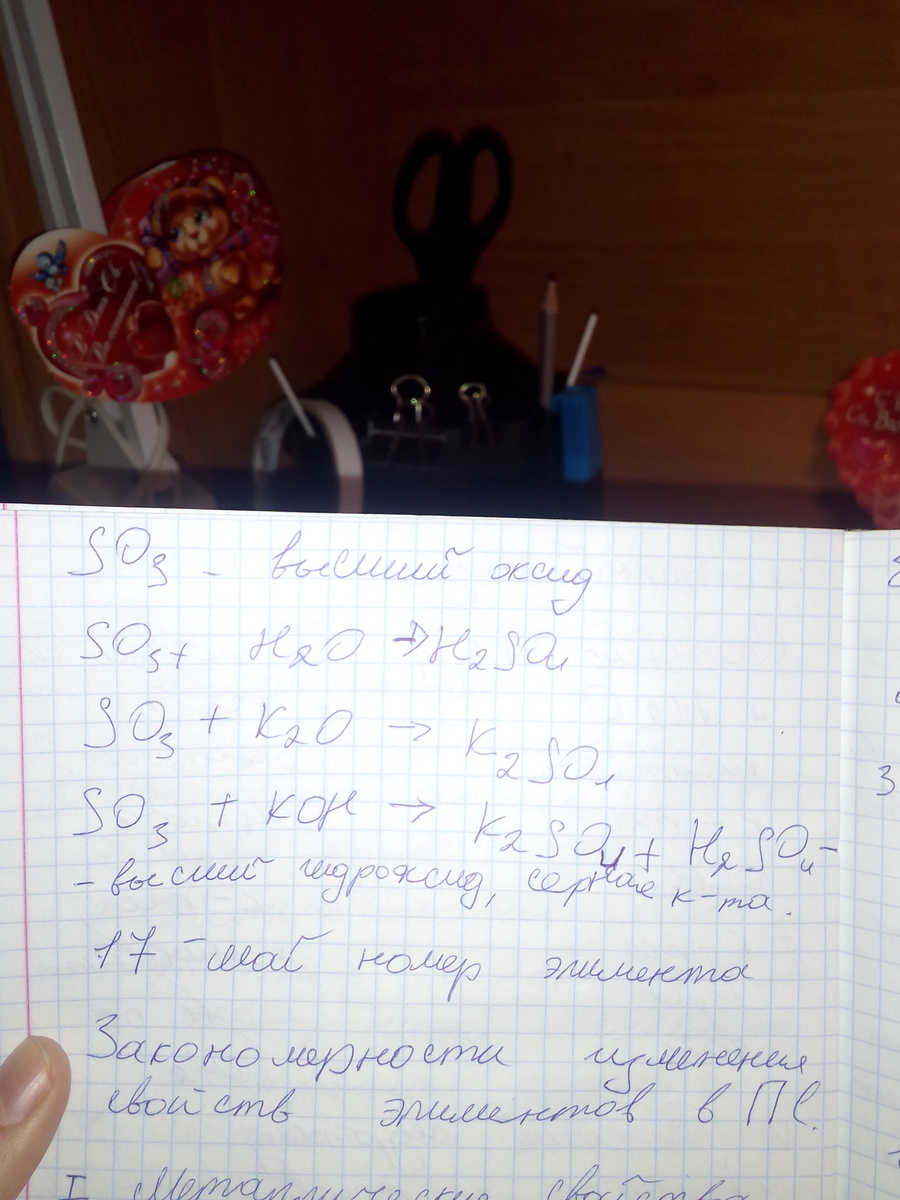 С Днем Св. Валентина!
SO₃ - высший оксид
SO₃ + H₂O → H₂SO₄
SO₃ + K₂O → K₂SO₄
SO₃ + KOH → K₂SO₄ + H₂SO₄ -
- высший гидроксид, серная к-та.
17 - май номер элимента
Закономерности изменения
свойств элиментов в ПС.
I Металлические свойства
3